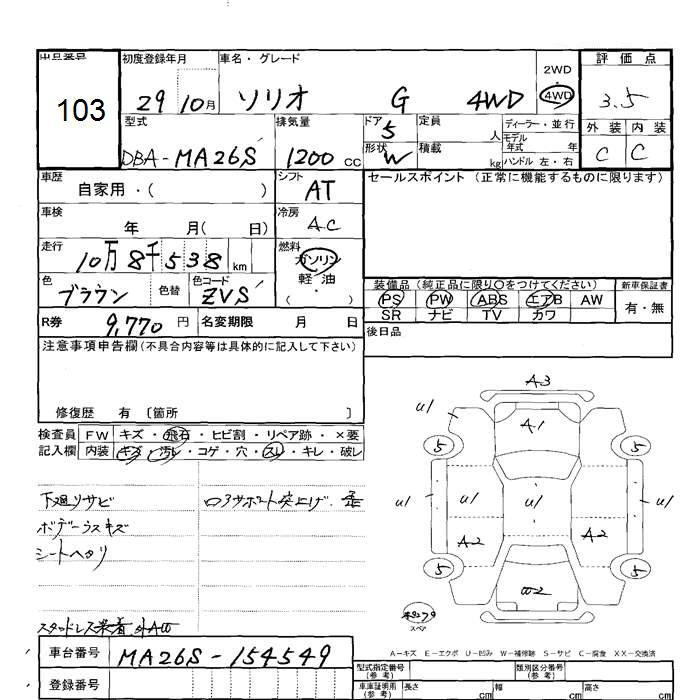 出品番号 初度登録年月 車名・グレード 2WD 評価点
103 29 10月 ソリオ G 4WD 4WD 3.5
型式 排気量 ドア 5 定員 人 ディーラー・並行 外装 内装
DBA-MA26S 1200 CC 形状 W 積載 kg モデル年式 年 ハンドル 左・右 C C
車歴 自家用・( ) シフト AT セールスポイント (正常に機能するものに限ります)
車検 年 月( 日) 冷房 AC
走行 10万8千538 km 燃料 ガソリン 軽・油 ( ・ )
色 ブラウン 色替 色コード ZVS 装備品 (純正品に限り○をつけてください) 新車保証書
PS PW ABS エアB AW 有・無
SR ナビ TV カワ
R券 9,770 円 名変期限 月 日 後日品
注意事項申告欄 (不具合内容等は具体的に記入して下さい)
修復歴 有 〔箇所 〕
検査員 FW キズ・飛石・ヒビ割・リペア跡・×要
記入欄 内装 キズ・汚レ・コゲ・穴・スレ・キレ・破レ
下廻リサビ
ボデーウスキズ
シートヘタリ
スタッドレス装着 外AW
A3
U/ A1
5 5
U/ U/ U/ U/ U/
A2 A2
5 5
W2
スペア
A-キズ E-エクボ U-凹み W-補修跡 S-サビ C-腐食 XX-交換済
車台番号 MA26S-154549
登録番号
型式指定番号 (参考) 類別区分番号 (参考)
車庫証明用 (参考) 長さ cm 幅 cm 高さ cm